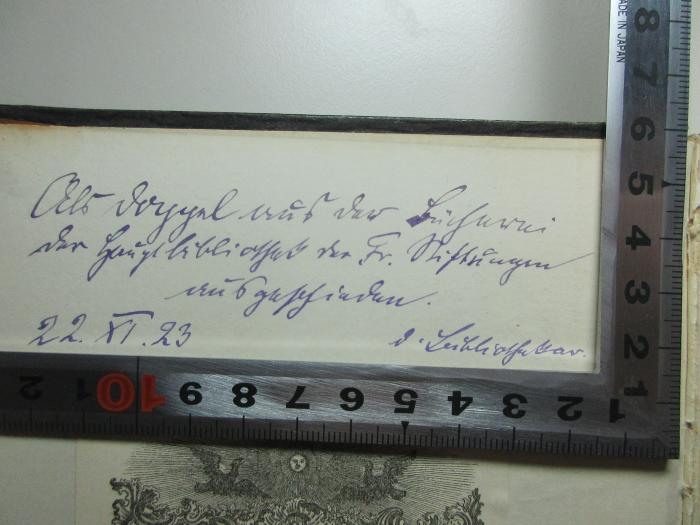 Als Doppel aus der Bücherei
der Hauptbibliothek der Fr. Stiftungen
ausgeschieden.
22. XI. 23
d. Bibliothekar.
MADE IN JAPAN
8
7
6
5
4
3
2
1
2 1 10 9 8 7 6 5 4 3 2 1